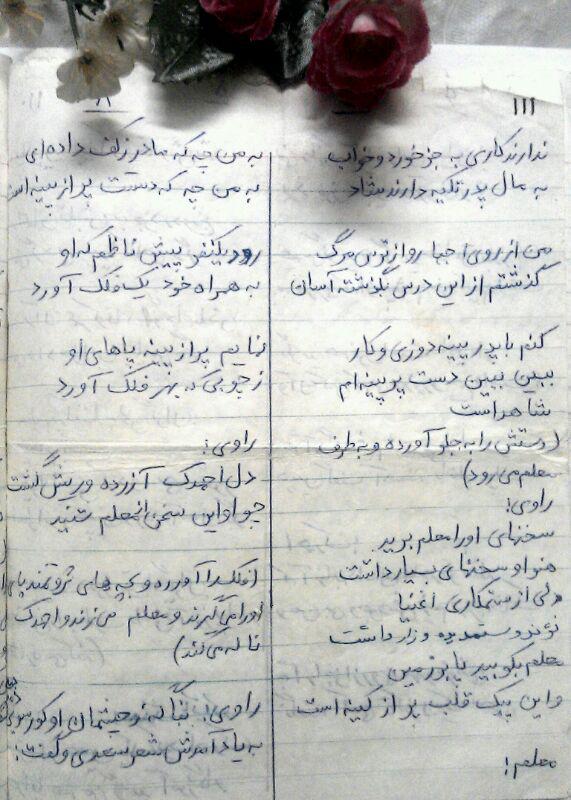 ۱۱۱
ندارند کاری به جز خورد و خواب
به مال پدر تکیه دارند و شاد
من از روی اجبار و از ترس مرگ
گذشتم از این درس بگذشته آسان
کنم با پدر پینه دوزی و کار
ببین ببین دست پر پینه ام
شاهد است
(دستش را به جلو آورده و به طرف
معلم می رود)
راوی:
سخنهای او را معلم برید
هنو او سخنهای بسیار داشت
دلی از ستمکاری اغنیا
نژند و ستمدیده و زار داشت
معلم بکوبید پا بر زمین
و این پیک قلب پر از کینه است
معلم:
۸
به من چه که مادر ز کف داده ای
به من چه که دستت پر از پینه است
رود یکنفر پیش ناظم که او
به همراه خود یک فلک آورد
نماییم پر از پینه پاهای او
ز چوبی که بهر فلک آورد
راوی:
دل احمدک آزرده و ریش گشت
چو او این سخن از معلم شنید
(فلک را آورده و بچه های ثروتمند پای
او را می گیرند و معلم می زند و احمدک
ناله می کند)
راوی: نگه تو چشمان او کور سویی
به یاد آمدش شعر سعدی و گفت: